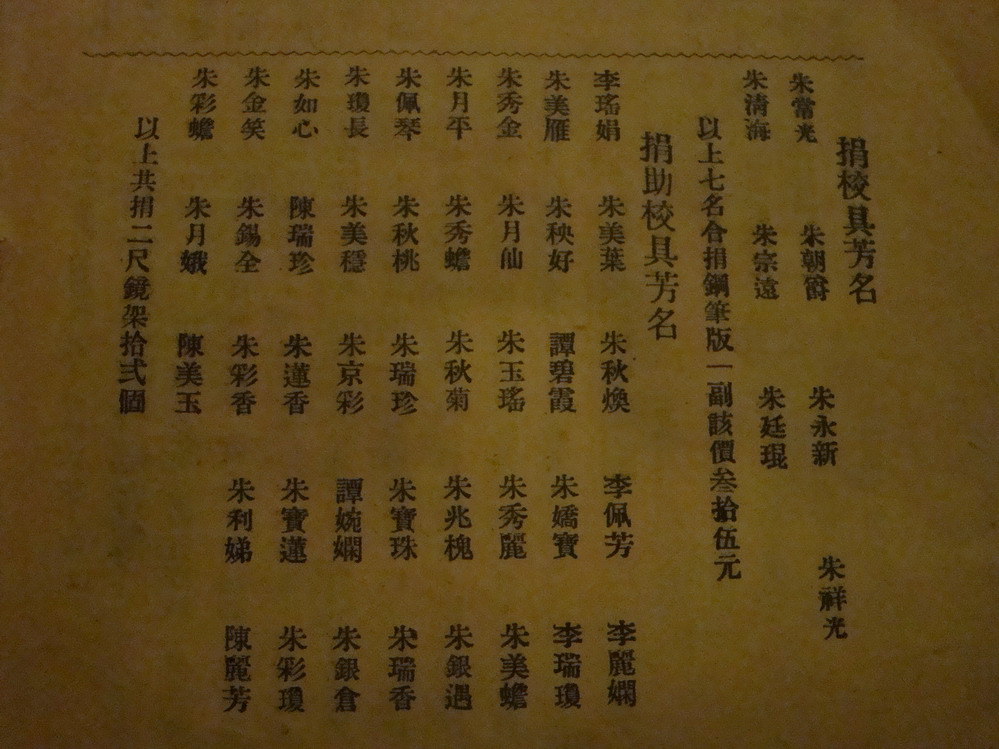 捐校具芳名
朱常光 朱朝爵 朱永新 朱祥光
朱清海 朱宗遠 朱廷琨
以上七名合捐鋼筆版一副該價叁拾伍元
捐助校具芳名
李瑤娟 朱美葉 朱秋煥 李佩芳 李麗嫻
朱美雁 朱秧好 譚碧霞 朱嬌寶 李瑞瓊
朱秀金 朱月仙 朱玉瑤 朱秀麗 朱美蟾
朱月平 朱秀蟾 朱秋菊 朱兆槐 朱銀遇
朱佩琴 朱秋桃 朱瑞珍 朱寶珠 朱瑞香
朱瓊長 朱美穩 朱京彩 譚婉嫻 朱銀倉
朱如心 陳瑞珍 朱蓮香 朱寶蓮 朱彩瓊
朱金笑 朱錫全 朱彩香 朱利娣 陳麗芳
朱彩蟾 朱月娥 陳美玉
以上共捐二尺鏡架拾弍個